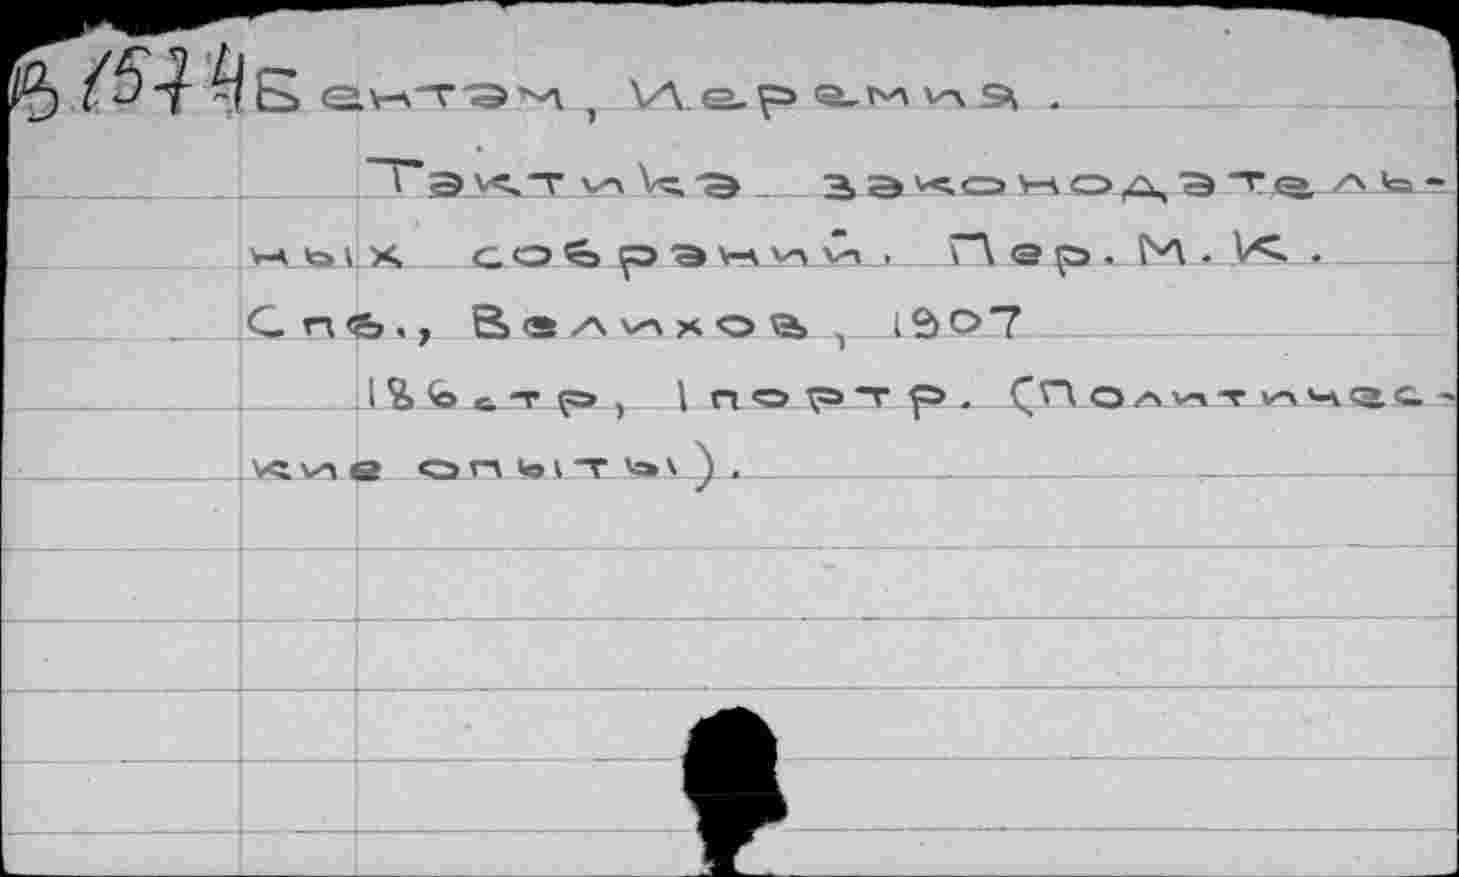 В 1574 Бентэм, Иеремия.
Тактика законодатель-
ных собраний. Пер. М. К.
Спб., Велихов, 1907
186стр, 1 портр. (Политичес-
кие опыты).